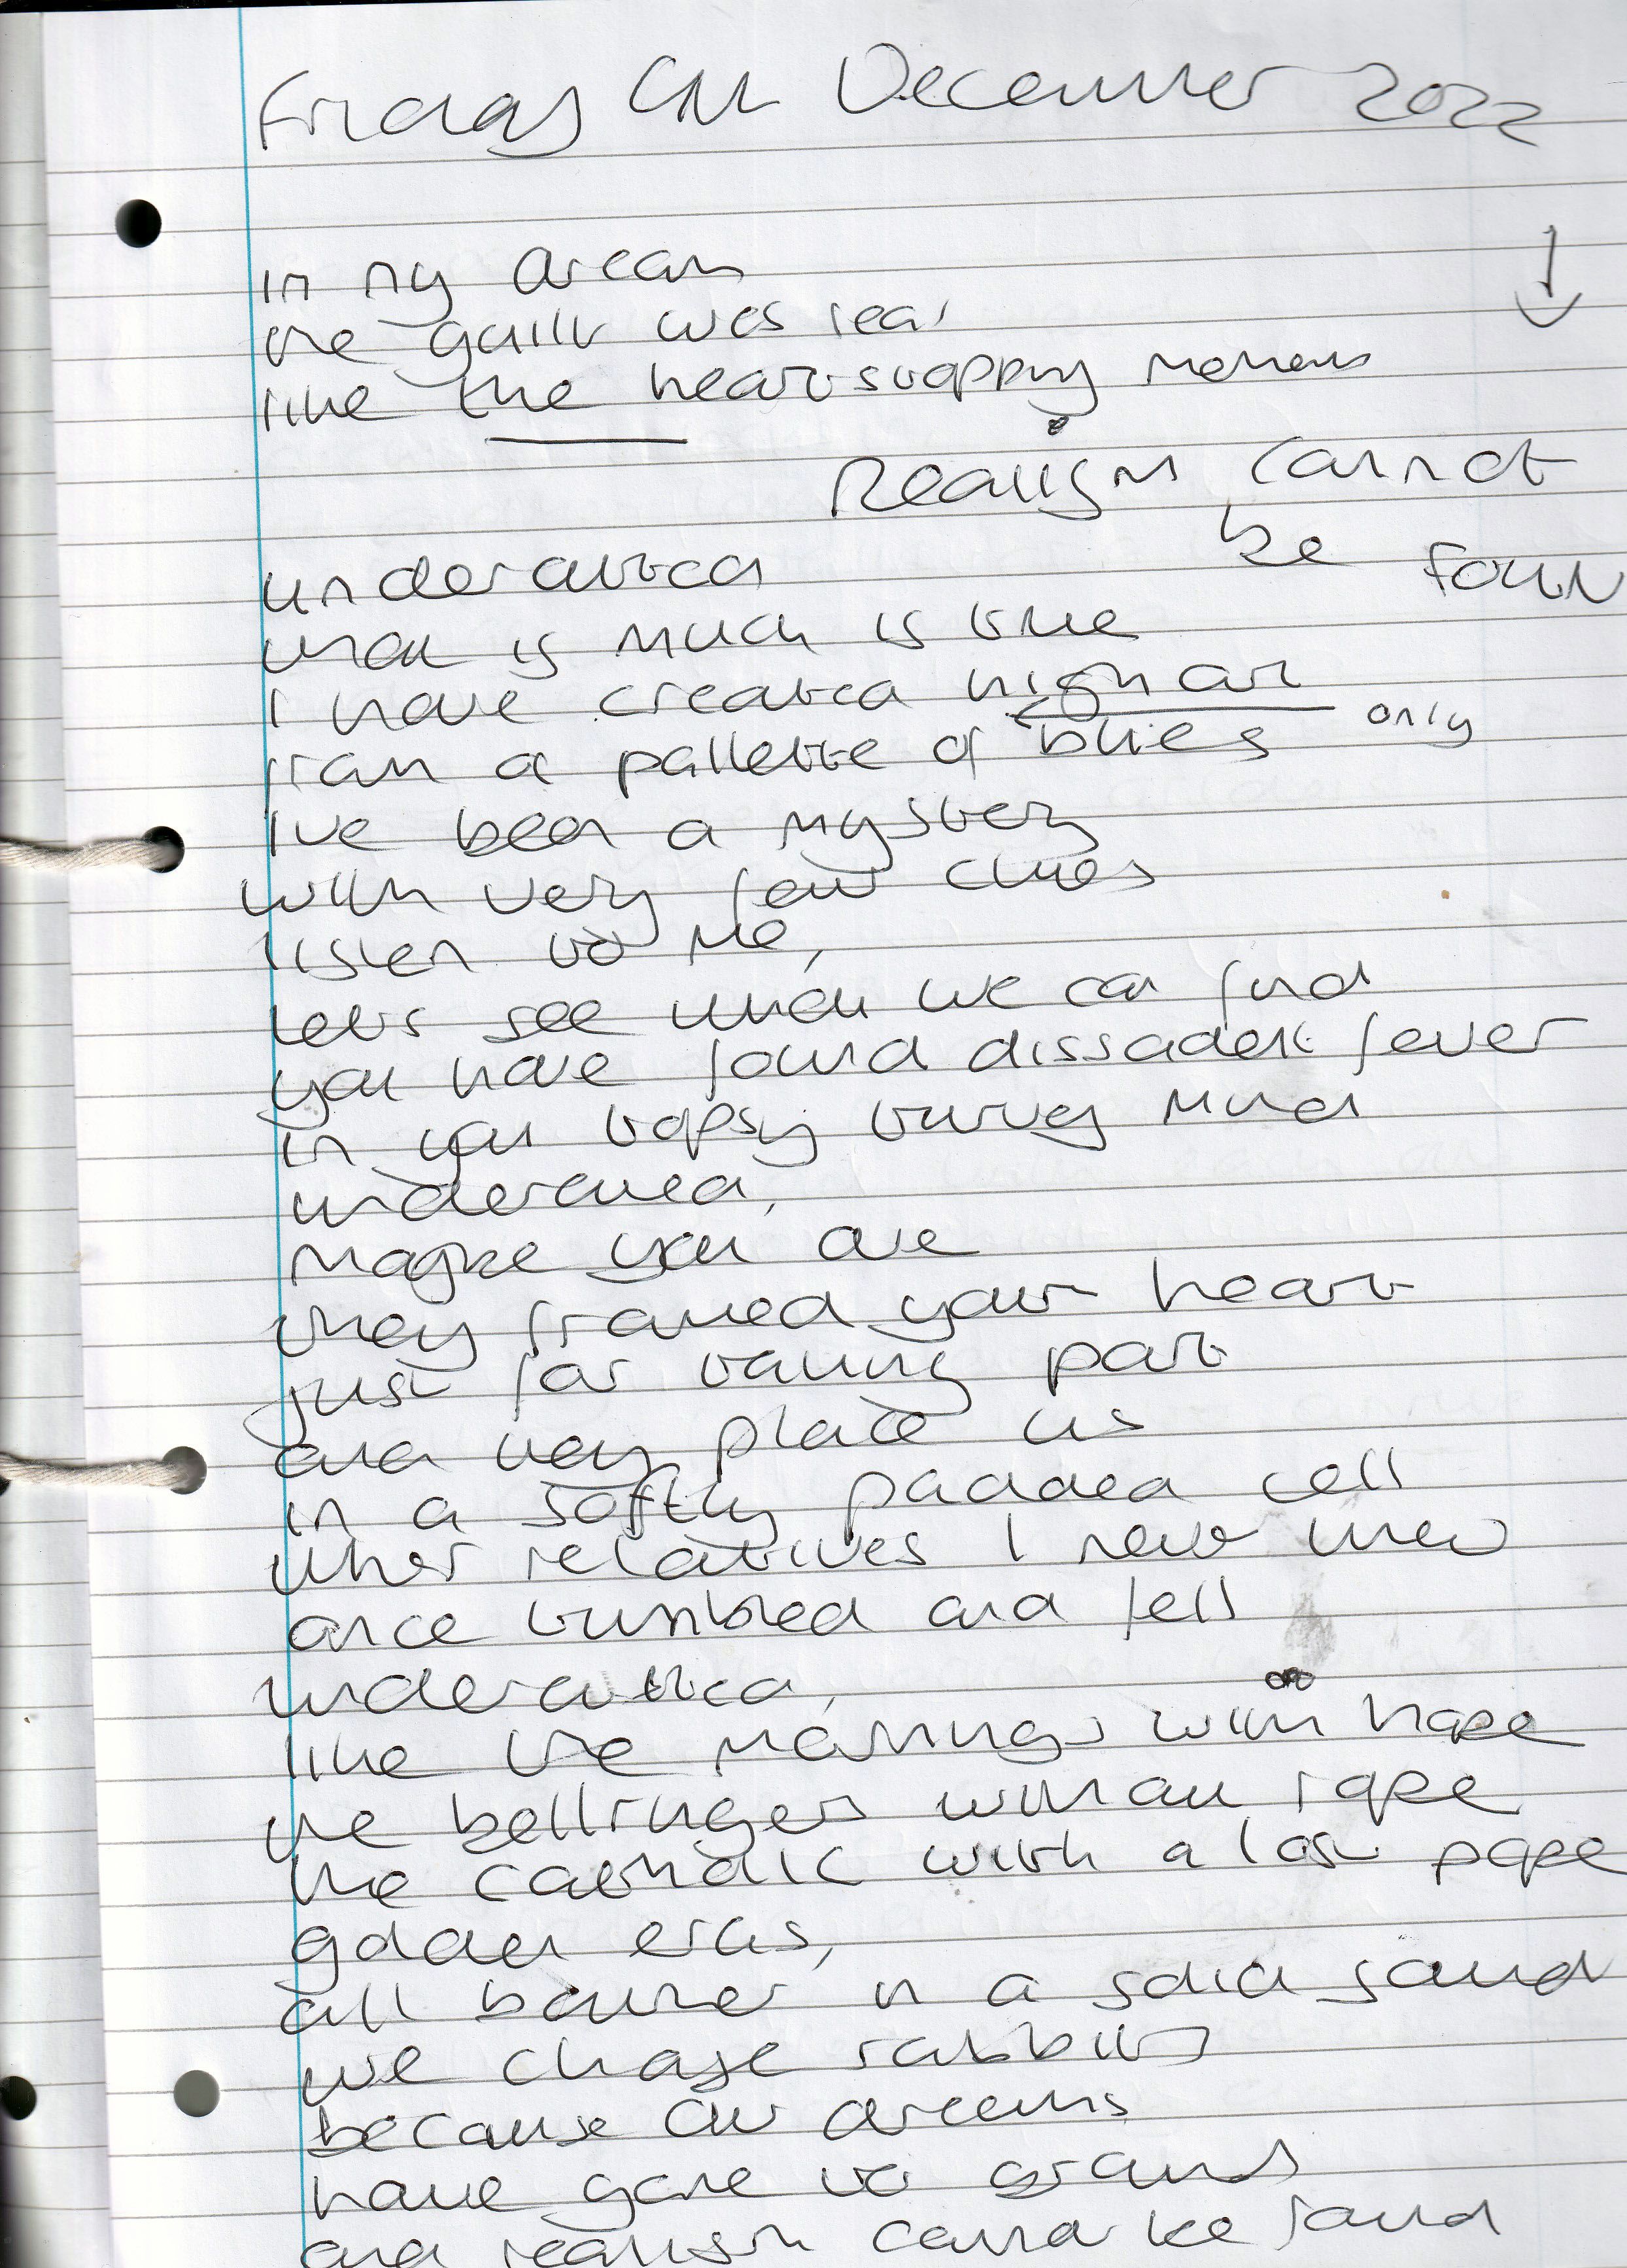 Friday 9th December 2022
in my dream
the guilt was real
like the heartstopping moment
Realism cannot
be found
underacted
what is much is true
I have created high art
from a pallette of blues only
I've been a mystery
with very few clues
listen to me,
let's see what we can find
you have found dissadent fever
in your topsy turvey mind
underacted,
maybe you are
they framed your heart
just for taking part
and they place us
in a softly padded cell
where relatives I never knew
once tumbled and fell
underacted,
like the mornings with hope
the bellringers without rope
the catholic with a lost pope
golden eras,
all in a solid sound
we chase rabbits
because our dreams
have gone to ground
and realism cannot be found